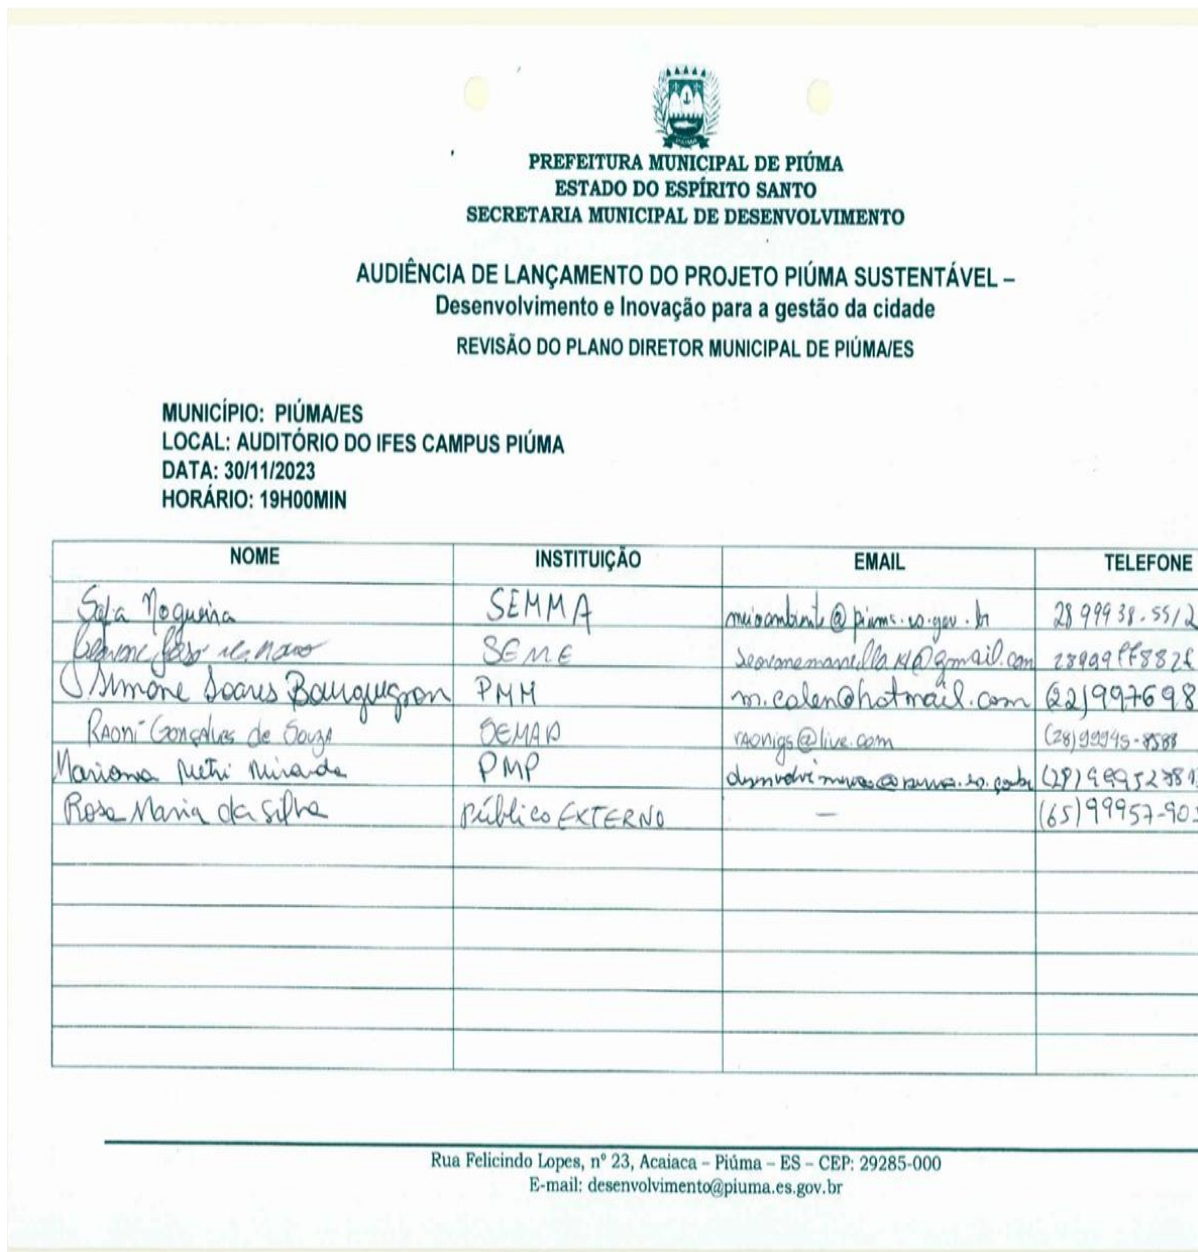 PIÚMA
PREFEITURA MUNICIPAL DE PIÚMA
ESTADO DO ESPÍRITO SANTO
SECRETARIA MUNICIPAL DE DESENVOLVIMENTO
AUDIÊNCIA DE LANÇAMENTO DO PROJETO PIÚMA SUSTENTÁVEL –
Desenvolvimento e Inovação para a gestão da cidade
REVISÃO DO PLANO DIRETOR MUNICIPAL DE PIÚMA/ES
MUNICÍPIO: PIÚMA/ES
LOCAL: AUDITÓRIO DO IFES CAMPUS PIÚMA
DATA: 30/11/2023
HORÁRIO: 19H00MIN
NOME INSTITUIÇÃO EMAIL TELEFONE
Nogueira SEMMA meioambiente@piuma.es.gov.br 28 99938-55/2
SEME
Simone Soares PMM m.calen@hotmail.com (22)997698
Raoni Gonçalves de Souza SEMAD raonigs@live.com (28)99945-8588
Mariana Netri Miranda PMP
Rosa Maria da Silva Público EXTERNO — (65)99957-90
Rua Felicindo Lopes, nº 23, Acaiaca – Piúma – ES – CEP: 29285-000
E-mail: desenvolvimento@piuma.es.gov.br